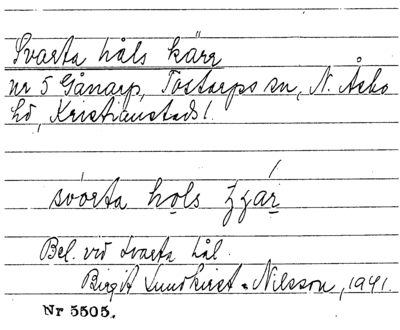 Svarta håls kärr
nr 5 Gånarp, Tostarps sn, N. Åsbo
hd, Kristianstads l.
svarta hols
Bel. vid Svarta hål.
Birgit Lundkvist-Nilsson, 1941.
Nr 5505.